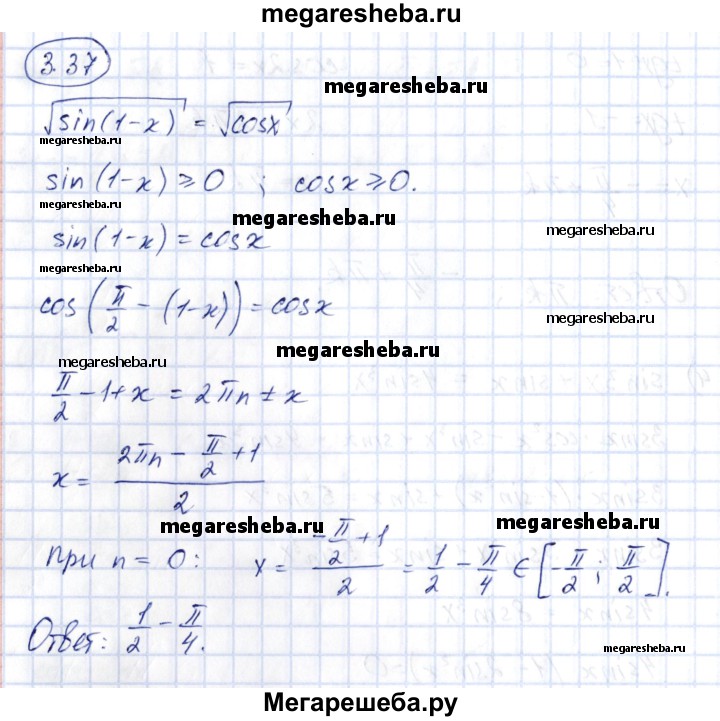 megaresheba.ru
3.37
megaresheba.ru
√sin(1-x) = √cosx
megaresheba.ru
megaresheba.ru
sin(1-x) ≥ 0 ; cosx ≥ 0.
megaresheba.ru
megaresheba.ru
sin(1-x) = cosx
megaresheba.ru
cos(π/2 - (1-x)) = cosx
megaresheba.ru
megaresheba.ru
megaresheba.ru
π/2 - 1 + x = 2πn ± x
x = (2πn - π/2 + 1)/2
megaresheba.ru
megaresheba.ru
При n = 0: x = (-π/2 + 1)/2 = 1/2 - π/4 ∈ [-π/2 ; π/2].
Ответ: 1/2 - π/4.
megaresheba.ru
Мегарешеба.ру